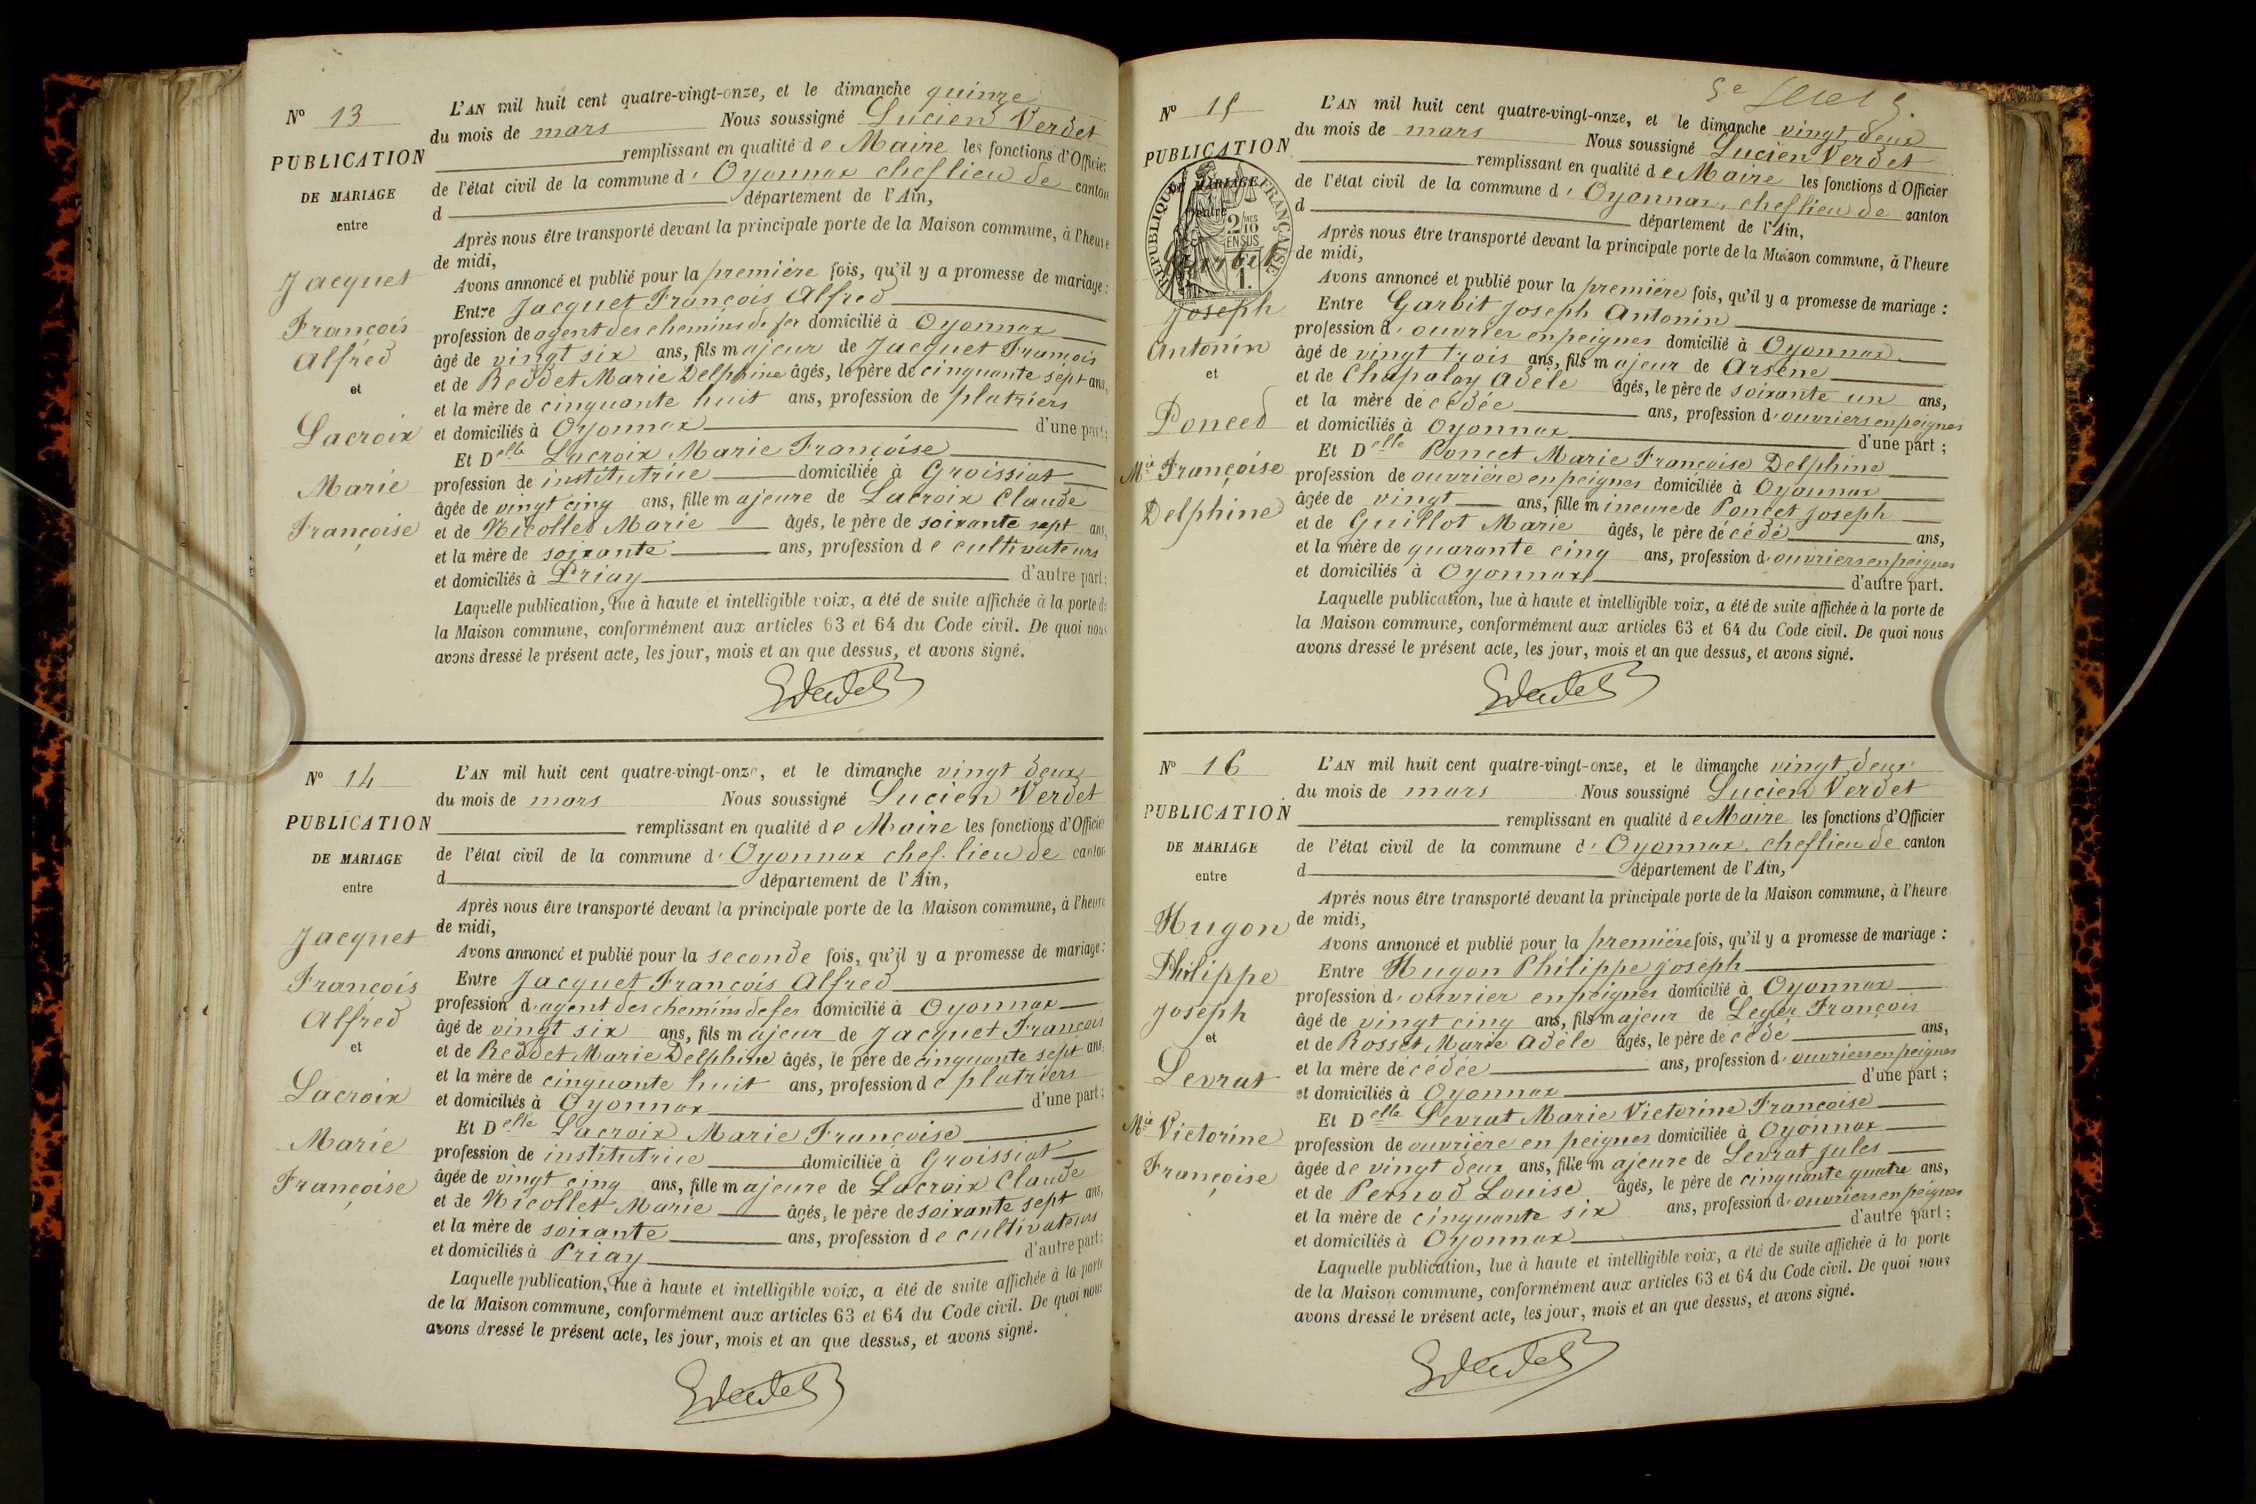 N° 13
PUBLICATION
DE MARIAGE
entre
Jacquet
François
Alfred
et
Lacroix
Marie
Françoise
L'AN mil huit cent quatre-vingt-onze, et le dimanche quinze
du mois de mars Nous soussigné Lucien Verdet
remplissant en qualité de Maire les fonctions d'Officier
de l'état civil de la commune d'Oyonnax chef lieu de canton
d département de l'Ain,
Après nous être transporté devant la principale porte de la Maison commune, à l'heure
de midi,
Avons annoncé et publié pour la première fois, qu'il y a promesse de mariage :
Entre Jacquet François Alfred
profession de agent des chemins de fer domicilié à Oyonnax
âgé de vingt six ans, fils majeur de Jacquet François
et de Reddet Marie Delphine âgés, le père de cinquante sept ans,
et la mère de cinquante huit ans, profession de platriers
et domiciliés à Oyonnax d'une part;
Et Delle Lacroix Marie Françoise
profession de institutrice domiciliée à Groissiat
âgée de vingt cinq ans, fille majeure de Lacroix Claude
et de Nicollet Marie âgés, le père de soixante sept ans,
et la mère de soixante ans, profession de cultivateurs
et domiciliés à Priay d'autre part;
Laquelle publication, lue à haute et intelligible voix, a été de suite affichée à la porte de
la Maison commune, conformément aux articles 63 et 64 du Code civil. De quoi nous
avons dressé le présent acte, les jour, mois et an que dessus, et avons signé.
N° 14
PUBLICATION
DE MARIAGE
entre
Jacquet
François
Alfred
et
Lacroix
Marie
Françoise
L'AN mil huit cent quatre-vingt-onze, et le dimanche vingt deux
du mois de mars Nous soussigné Lucien Verdet
remplissant en qualité de Maire les fonctions d'Officier
de l'état civil de la commune d'Oyonnax chef-lieu de canton
d département de l'Ain,
Après nous être transporté devant la principale porte de la Maison commune, à l'heure
de midi,
Avons annoncé et publié pour la seconde fois, qu'il y a promesse de mariage :
Entre Jacquet François Alfred
profession d'agent des chemins de fer domicilié à Oyonnax
âgé de vingt six ans, fils majeur de Jacquet François
et de Reddet Marie Delphine âgés, le père de cinquante sept ans,
et la mère de cinquante huit ans, profession de platriers
et domiciliés à Oyonnax d'une part;
Et Delle Lacroix Marie Françoise
profession de institutrice domiciliée à Groissiat
âgée de vingt cinq ans, fille majeure de Lacroix Claude
et de Nicollet Marie âgés, le père de soixante sept ans,
et la mère de soixante ans, profession de cultivateurs
et domiciliés à Priay d'autre part;
Laquelle publication, lue à haute et intelligible voix, a été de suite affichée à la porte
de la Maison commune, conformément aux articles 63 et 64 du Code civil. De quoi nous
avons dressé le présent acte, les jour, mois et an que dessus, et avons signé.
N° 15
PUBLICATION
DE MARIAGE
entre
RÉPUBLIQUE FRANÇAISE
2/10 MES
EN SUS
1.
Garbit
Joseph
Antonin
et
Poncet
Mie Françoise
Delphine
L'AN mil huit cent quatre-vingt-onze, et le dimanche vingt deux
du mois de mars Nous soussigné Lucien Verdet
remplissant en qualité de Maire les fonctions d'Officier
de l'état civil de la commune d'Oyonnax, chef lieu de canton
d département de l'Ain,
Après nous être transporté devant la principale porte de la Maison commune, à l'heure
de midi,
Avons annoncé et publié pour la première fois, qu'il y a promesse de mariage :
Entre Garbit Joseph Antonin
profession d'ouvrier en peignes domicilié à Oyonnax
âgé de vingt trois ans, fils majeur de Arsène
et de Chapalay Adèle âgés, le père de soixante un ans,
et la mère décédée ans, profession d'ouvriers en peignes
et domiciliés à Oyonnax d'une part ;
Et Delle Poncet Marie Françoise Delphine
profession de ouvrière en peignes domiciliée à Oyonnax
âgée de vingt ans, fille mineure de Poncet Joseph
et de Guillot Marie âgés, le père décédé ans,
et la mère de quarante cinq ans, profession d'ouvriers en peignes
et domiciliés à Oyonnax d'autre part.
Laquelle publication, lue à haute et intelligible voix, a été de suite affichée à la porte de
la Maison commune, conformément aux articles 63 et 64 du Code civil. De quoi nous
avons dressé le présent acte, les jour, mois et an que dessus, et avons signé.
N° 16
PUBLICATION
DE MARIAGE
entre
Hugon
Philippe
Joseph
et
Levrat
Mie Victorine
Françoise
L'AN mil huit cent quatre-vingt-onze, et le dimanche vingt deux
du mois de mars Nous soussigné Lucien Verdet
remplissant en qualité de Maire les fonctions d'Officier
de l'état civil de la commune d'Oyonnax, chef lieu de canton
d département de l'Ain,
Après nous être transporté devant la principale porte de la Maison commune, à l'heure
de midi,
Avons annoncé et publié pour la première fois, qu'il y a promesse de mariage :
Entre Hugon Philippe Joseph
profession d'ouvrier en peignes domicilié à Oyonnax
âgé de vingt cinq ans, fils majeur de Leger François
et de Rosset Marie Adèle âgés, le père décédé ans,
et la mère décédée ans, profession d'ouvriers en peignes
et domiciliés à Oyonnax d'une part ;
Et Delle Levrat Marie Victorine Françoise
profession de ouvrière en peignes domiciliée à Oyonnax
âgée de vingt deux ans, fille majeure de Levrat Jules
et de Pernod Louise âgés, le père de cinquante quatre ans,
et la mère de cinquante six ans, profession d'ouvriers en peignes
et domiciliés à Oyonnax d'autre part ;
Laquelle publication, lue à haute et intelligible voix, a été de suite affichée à la porte
de la Maison commune, conformément aux articles 63 et 64 du Code civil. De quoi nous
avons dressé le présent acte, les jour, mois et an que dessus, et avons signé.